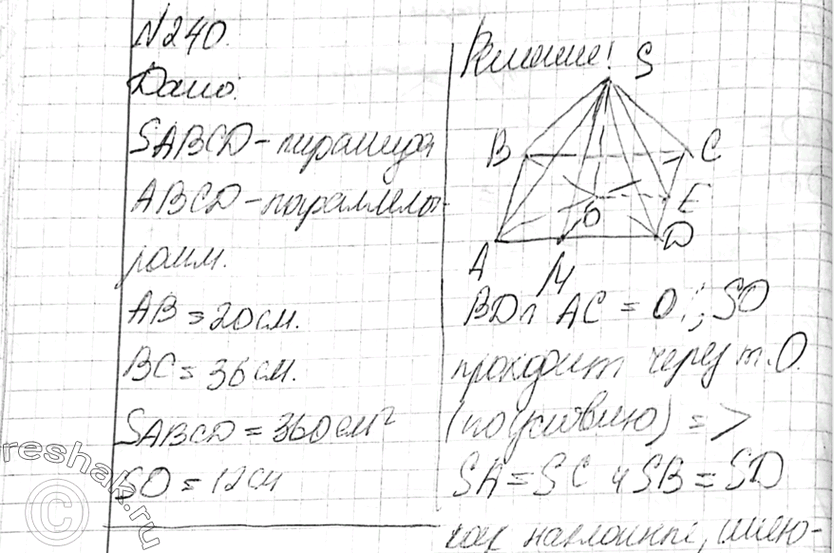 N240.
Дано:
SABCD - пирамида
ABCD - параллелог-
рамм.
AB = 20 см.
BC = 36 см.
SABCD = 360 см²
SO = 12 см
Решение:
S
B
C
O
E
A
M
D
BD ∩ AC = O; SO
проходит через т. O.
(по условию) =>
SA = SC и SB = SD
как наклонные, имею-
reshak.ru
©